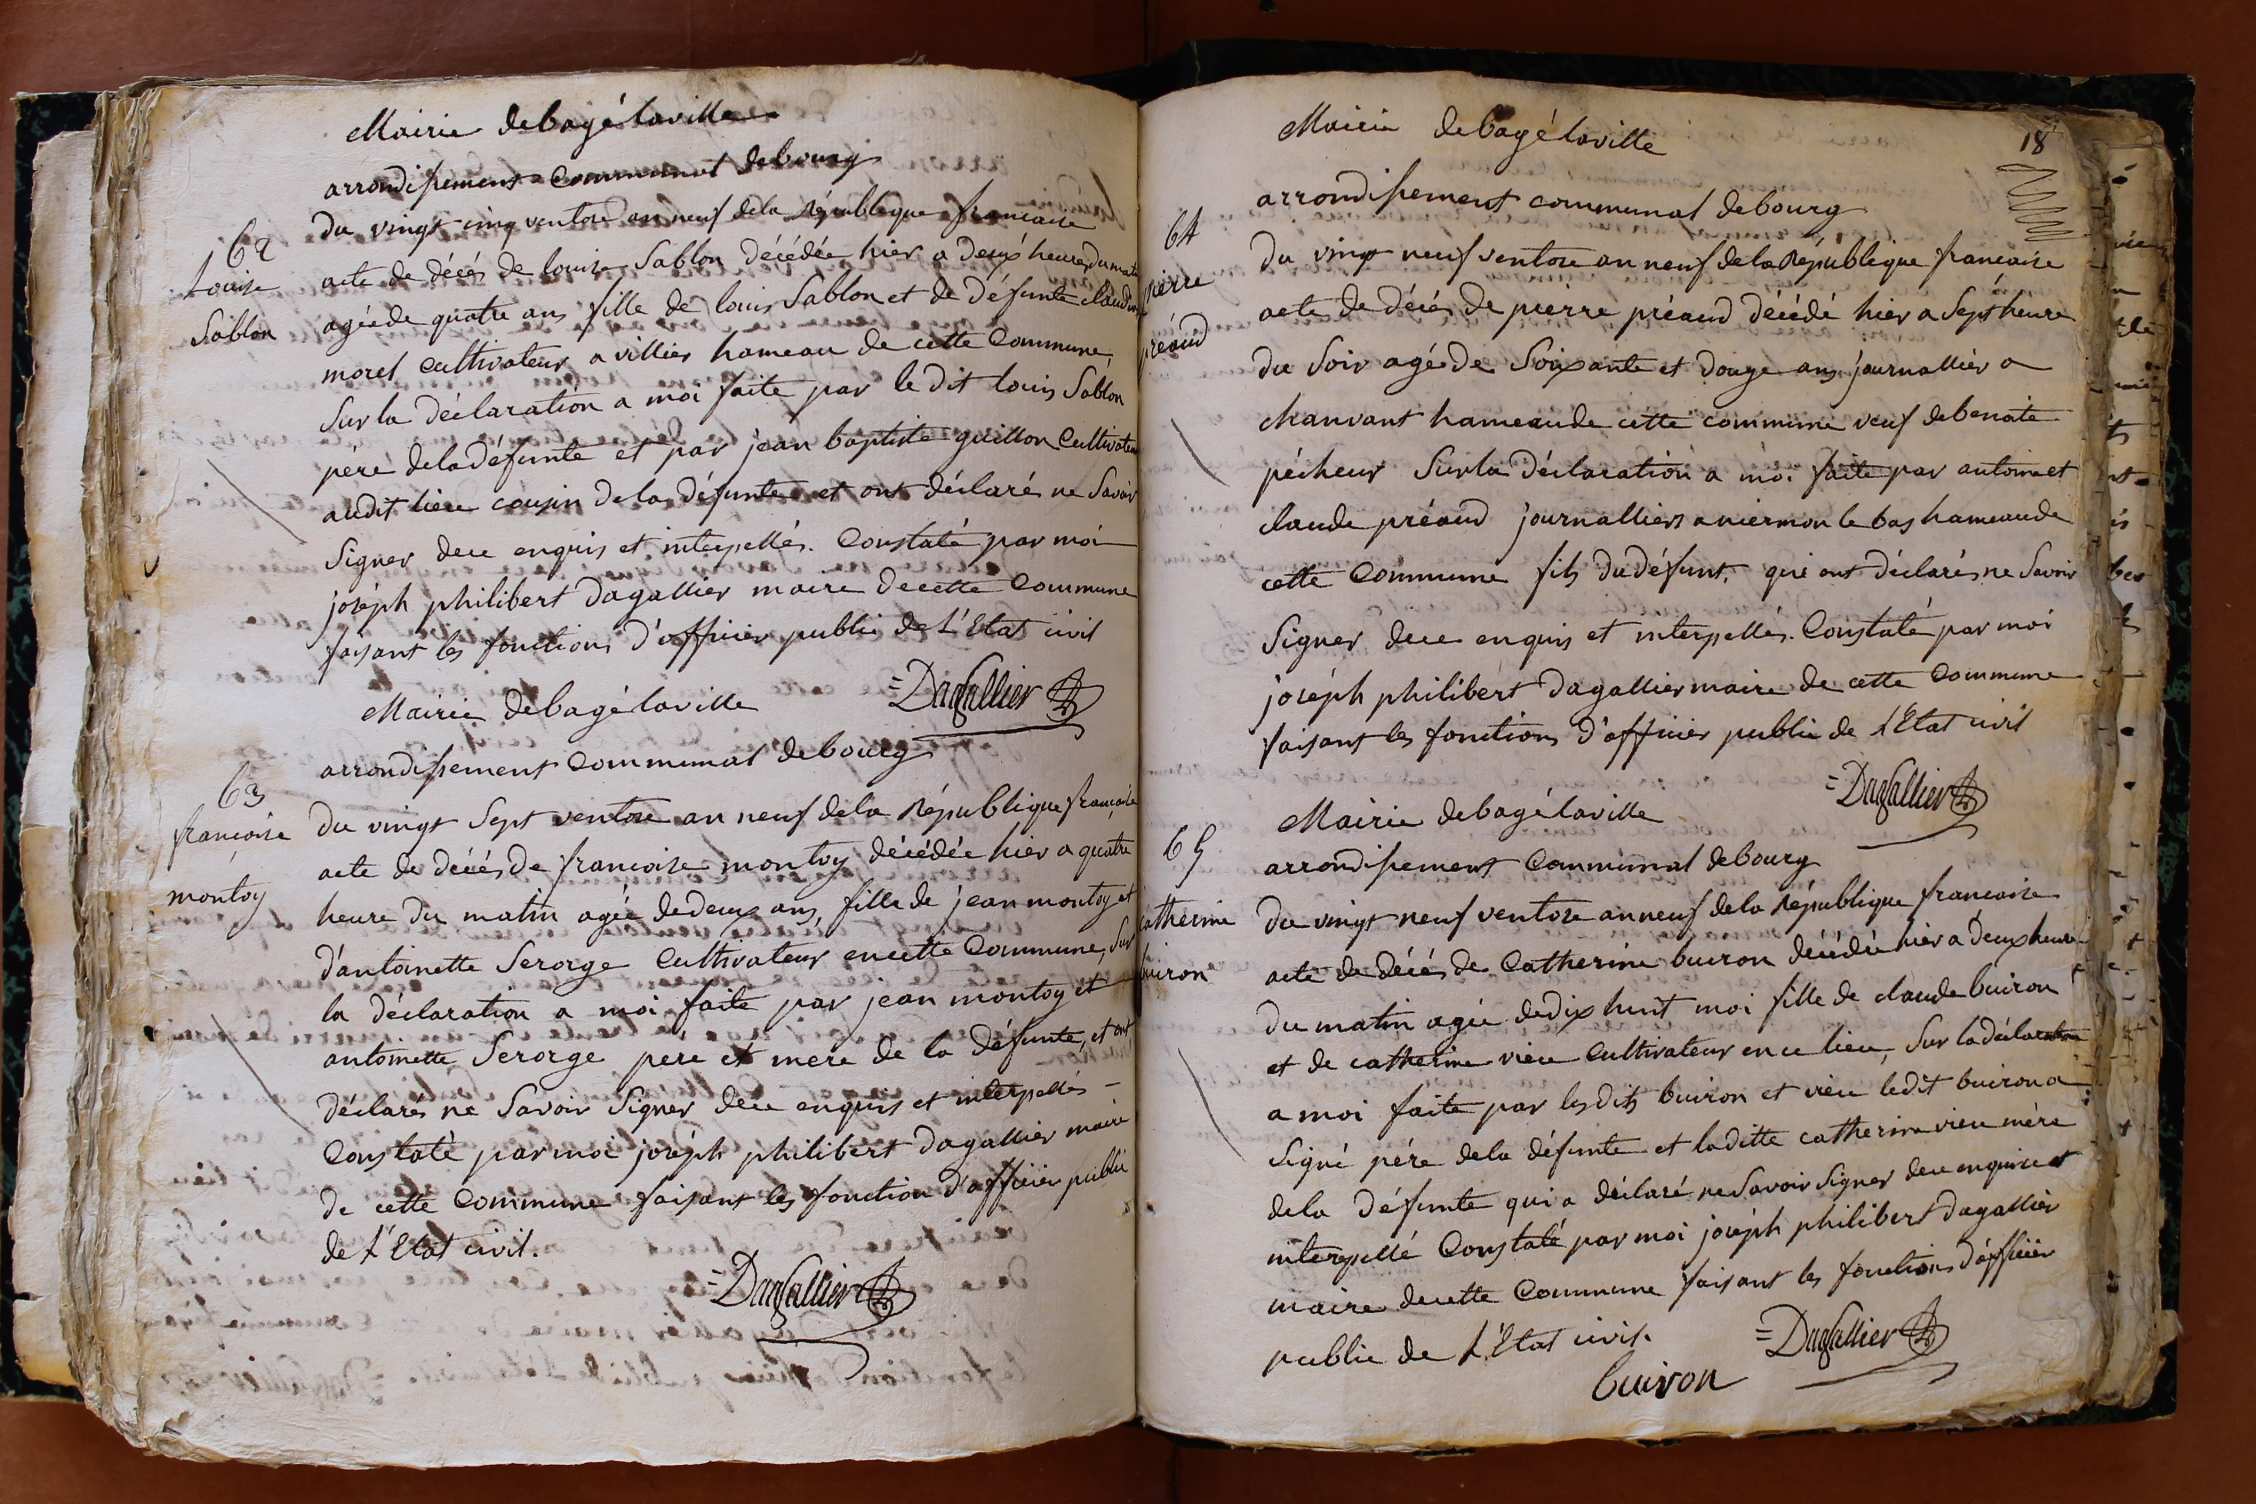 Mairie de bagé laville
arrondissement communal de bourg
62
Louise
Sablon
du vingt cinq ventose an neuf de la République francaise
acte de décés de louise Sablon décédée hier a deux heures du matin
agée de quatre ans fille de louis Sablon et de défunte claudine
morel cultivateur a villier hameau de cette Commune,
Sur la déclaration a moi faite par le dit louis Sablon
père de la défunte et par jean baptiste guillon Cultivateur
audit lieu cousin de la défunte et ont déclaré ne Savoir
Signer de ce enquis et interpellés. Constaté par moi
joséph philibert dagallier maire de cette Commune
faisant les fonctions d'officier public de L'Etat civil
=Dagallier
Mairie de bagé laville
arrondissement Communal de bourg
63
francoise
montoy
du vingt Sept ventose an neuf de la République francaise
acte de décés de francoise montoy décédée hier a quatre
heure du matin agée de deux ans, fille de jean montoy et
d'antoinette Serorge Cultivateur en cette Commune, Sur
la déclaration a moi faite par jean montoy et
antoinette Serorge père et mere de la défunte, et ont
déclarés ne Savoir Signer de ce enquis et interpellés -
Constaté par moi joséph philibert dagallier maire
de cette Commune faisant les fonction d'officier public
de L'Etat civil.
=Dagallier
18
Mairie de bagé laville
arrondissement communal de bourg
64
pierre
préaud
du vingt neuf ventose an neuf de la République francaise
acte de décés de pierre préaud décédé hier a Sept heure
du Soir agé de Soixante et douze ans journallier a
chanvant hameau de cette commune veuf de benoite
pécheur Sur la déclaration a moi faite par antoine et
claude préaud journalliers a niermon le bas hameau de
cette Commune fils du défunt, qui ont déclarés ne Savoir
Signer de ce enquis et interpellés. Constaté par moi
joséph philibert dagallier maire de cette Commune
faisant les fonctions d'officier public de L'Etat civil
=Dagallier
Mairie de bagé laville
arrondissement Communal de bourg
65
catherine
buiron
du vingt neuf ventose an neuf de la République francaise
acte de décés de Catherine buiron décédée hier a deux heure
du matin agée de dix huit moi fille de claude buiron
et de catherine vieu Cultivateur en ce lieu, Sur la déclaration
a moi faite par lesdits buiron et vieu ledit buiron a
Signé père de la défunte et laditte catherine vieu mère
de la défunte qui a déclaré ne Savoir Signer de ce enquise et
interpellé Constaté par moi joséph philibert dagallier
maire de cette Commune faisant les fonctions d'officier
public de L'Etat civil.
=Dagallier
buiron